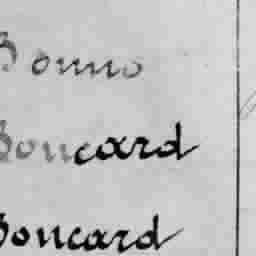 Bonno
Boncard
Boncard